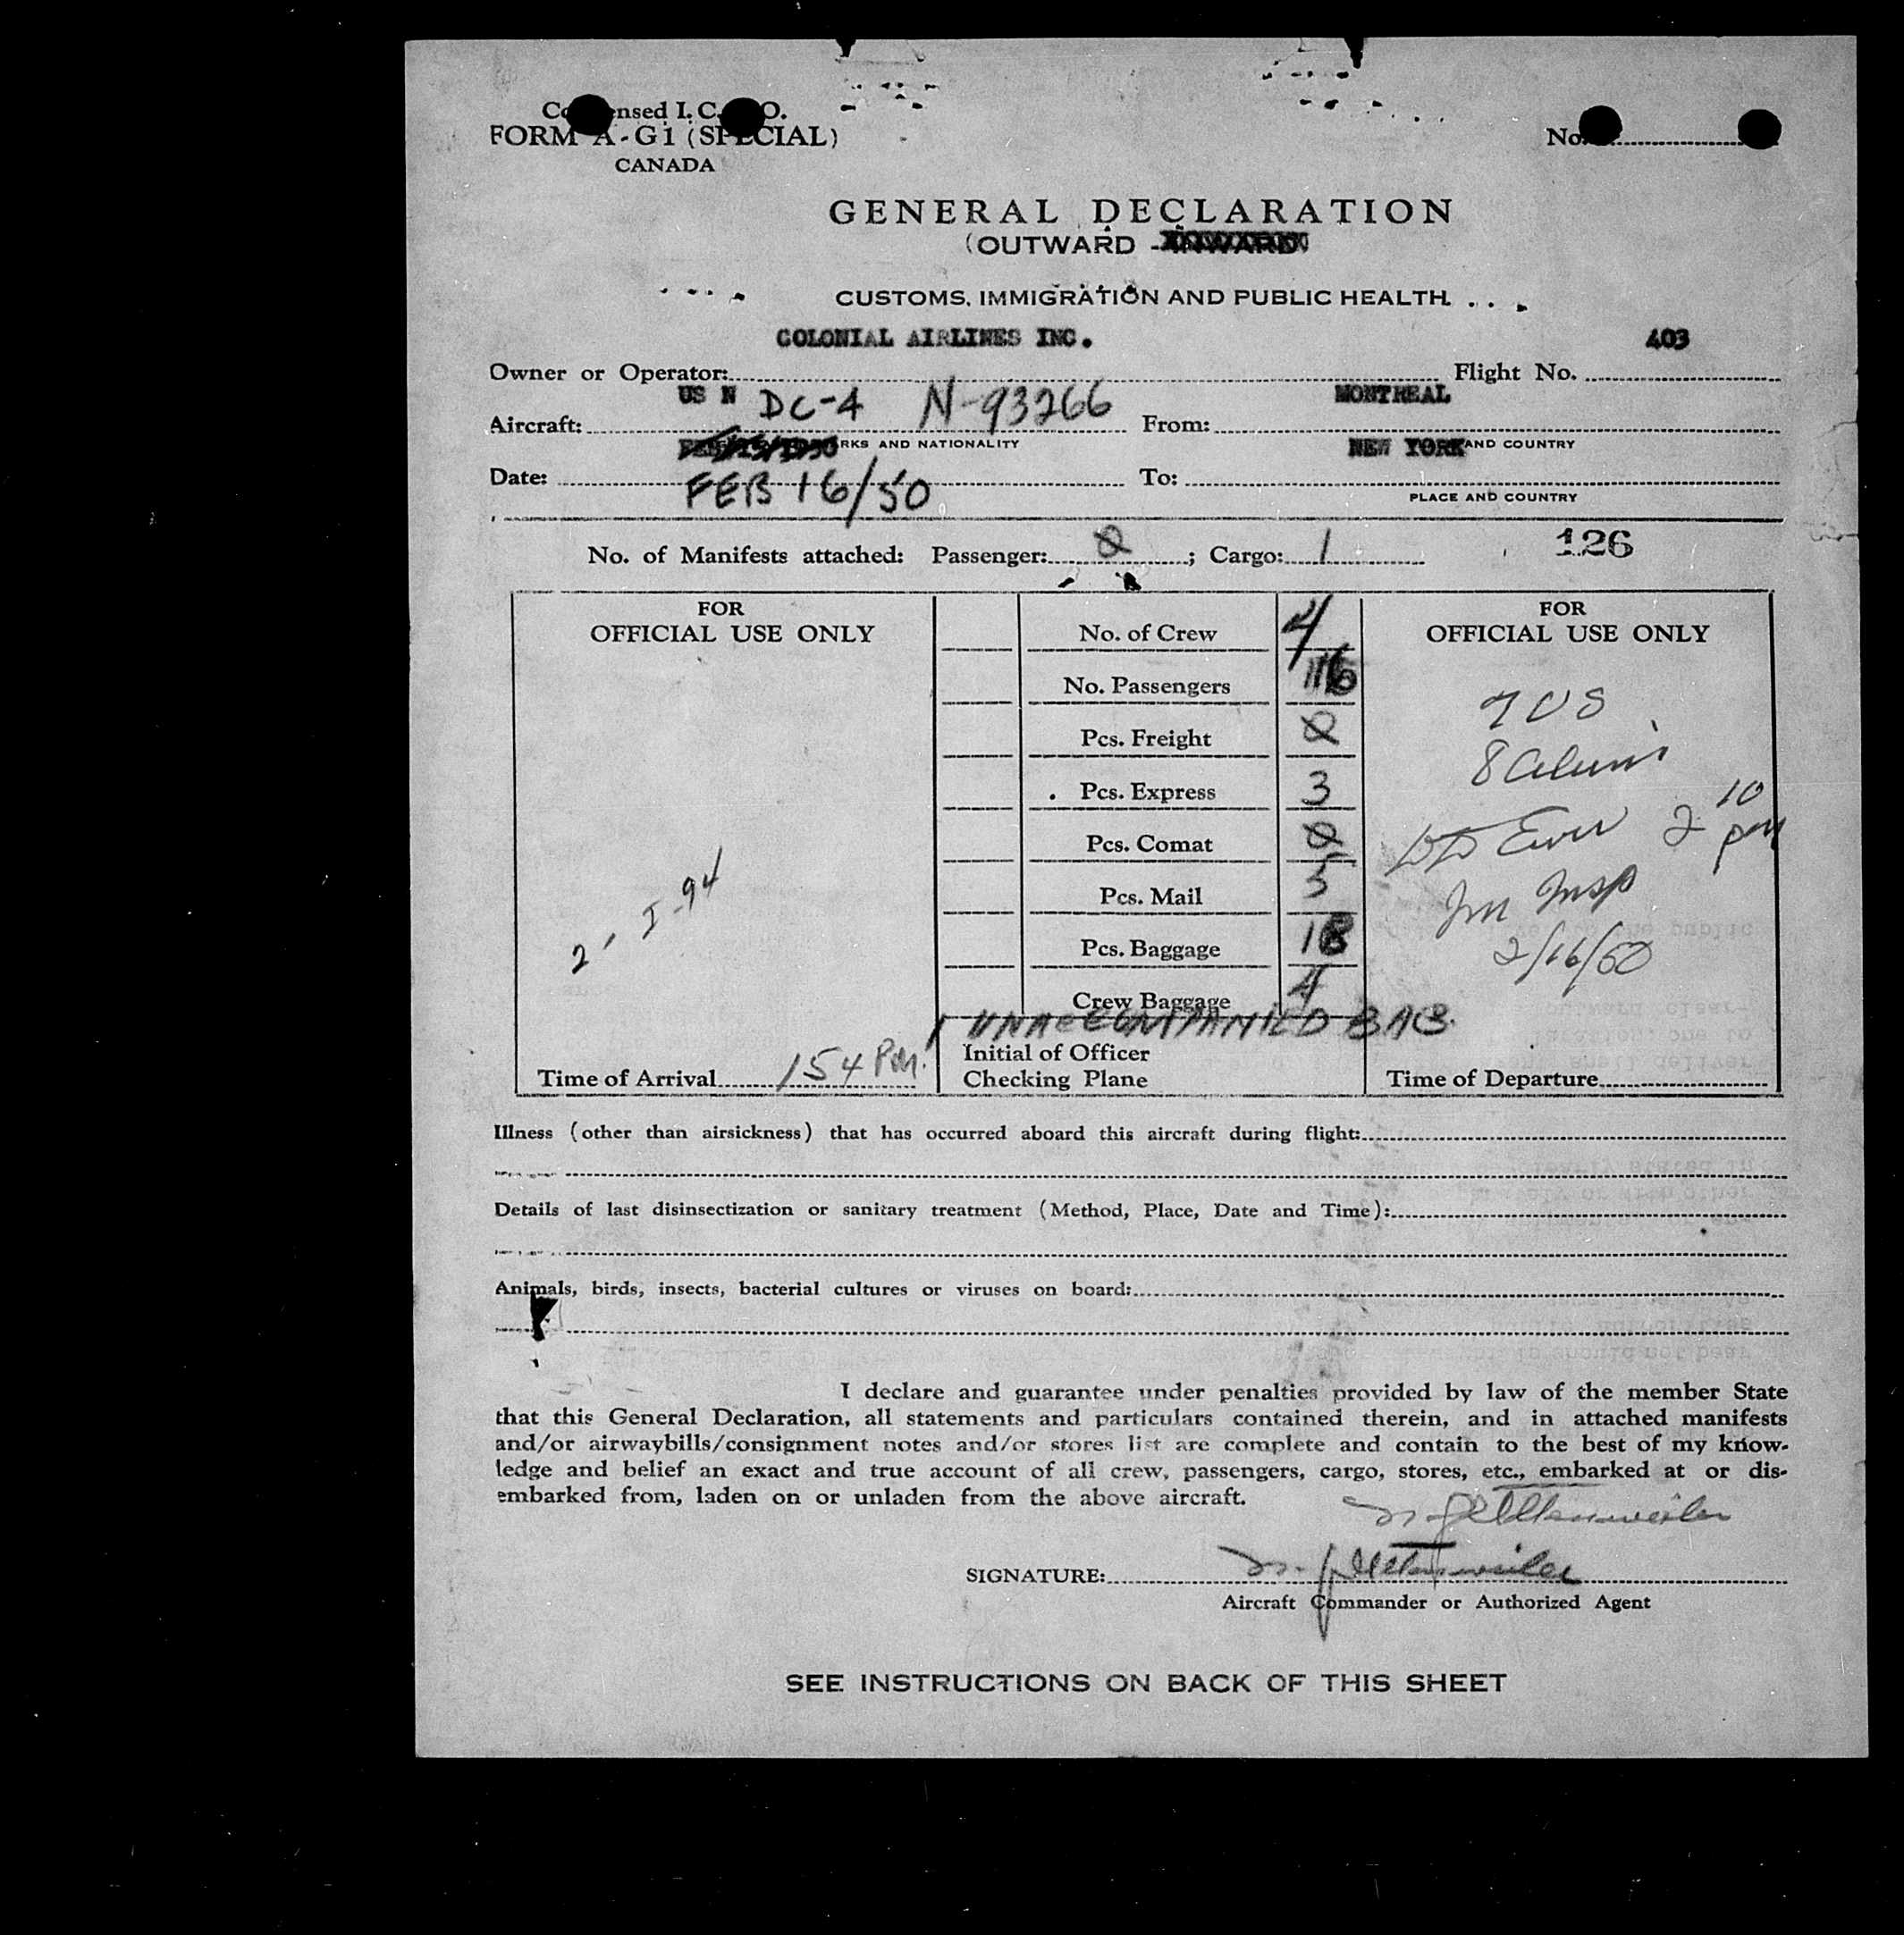 Condensed I. C. A. O.
FORM A-G1 (SPECIAL)
CANADA
No.
GENERAL DECLARATION
(OUTWARD - INWARD)
CUSTOMS, IMMIGRATION AND PUBLIC HEALTH
COLONIAL AIRLINES INC. 403
Owner or Operator: Flight No.
US N DC-4 N-93266 MONTREAL
Aircraft: From:
MARKS AND NATIONALITY AND COUNTRY
NEW YORK
Date: FEB 16/50 To:
PLACE AND COUNTRY
No. of Manifests attached: Passenger: 0; Cargo: 1 126
FOR
OFFICIAL USE ONLY
2 - I-94
Time of Arrival 154 PM.
No. of Crew 4
No. Passengers 16
Pcs. Freight 0
Pcs. Express 3
Pcs. Comat 0
Pcs. Mail 5
Pcs. Baggage 18
Crew Baggage 4
1 UNACCOMPANIED BAG.
Initial of Officer
Checking Plane
FOR
OFFICIAL USE ONLY
7 US
8 Aliens
2 10 pm
Im Insp
2/16/50
Time of Departure
Illness (other than airsickness) that has occurred aboard this aircraft during flight:
Details of last disinsectization or sanitary treatment (Method, Place, Date and Time):
Animals, birds, insects, bacterial cultures or viruses on board:
I declare and guarantee under penalties provided by law of the member State
that this General Declaration, all statements and particulars contained therein, and in attached manifests
and/or airwaybills/consignment notes and/or stores list are complete and contain to the best of my know-
ledge and belief an exact and true account of all crew, passengers, cargo, stores, etc., embarked at or dis-
embarked from, laden on or unladen from the above aircraft.
SIGNATURE:
Aircraft Commander or Authorized Agent
SEE INSTRUCTIONS ON BACK OF THIS SHEET